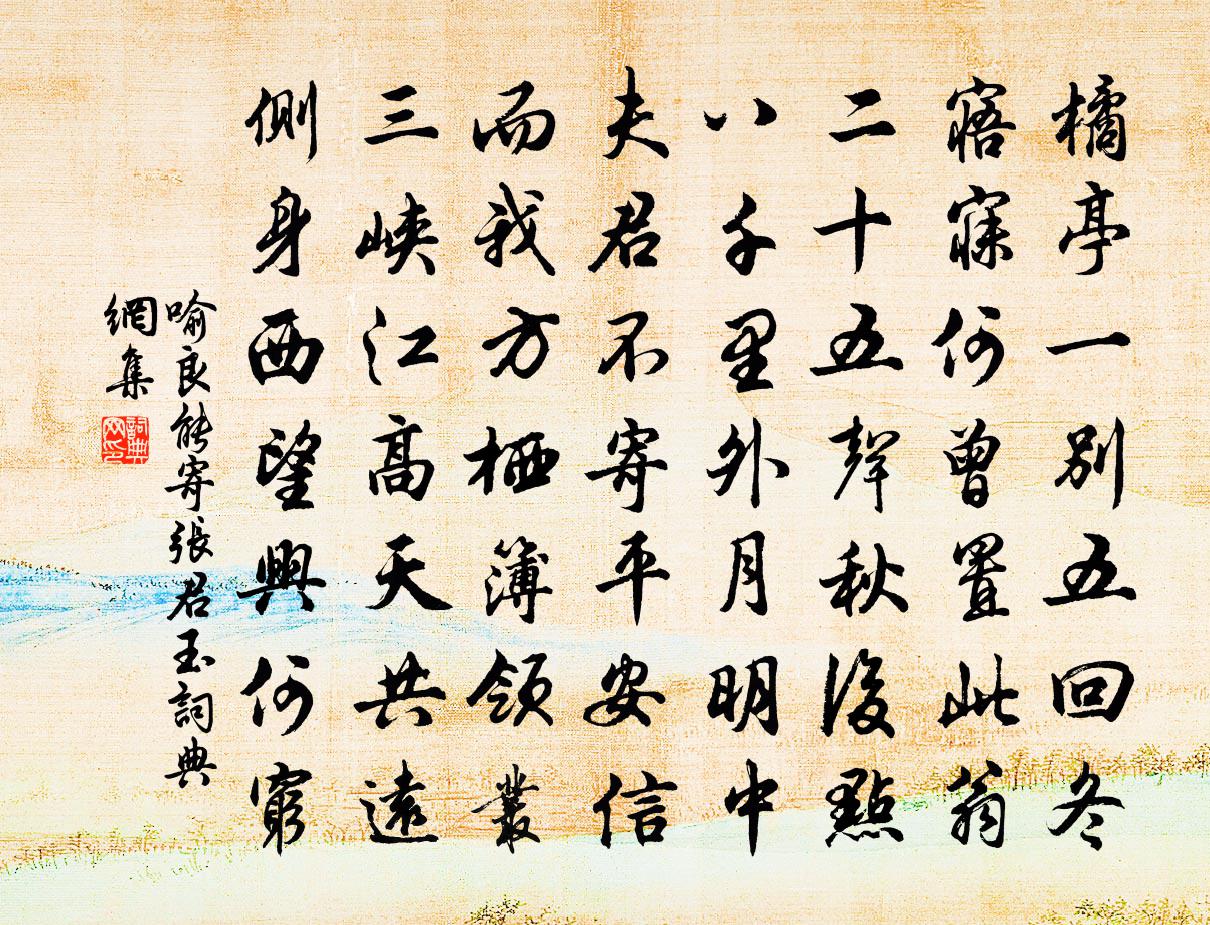 橘亭一別五回冬
寤寐何曾置此翁
二十五聲秋後點
八千里外月明中
夫君不寄平安信
而我方栖簿領叢
三峽江高天共遠
側身西望興何窮
喻良能寄張君玉詞典
網集
詞典
网印